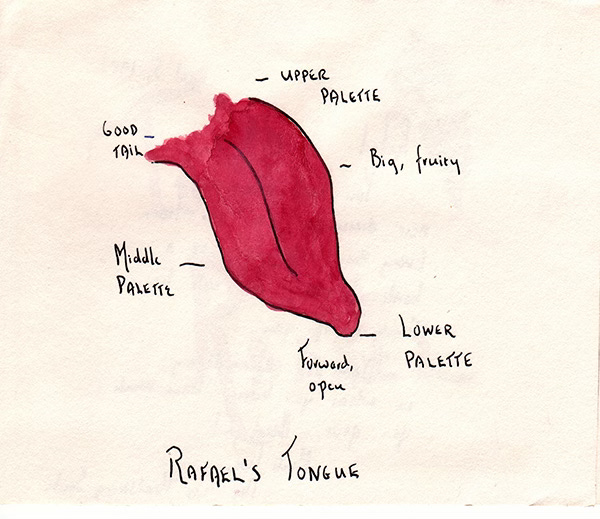 – UPPER
PALETTE
GOOD –
TAIL
– Big, fruity
Middle –
PALETTE
– LOWER
PALETTE
Forward,
open
RAFAEL'S TONGUE